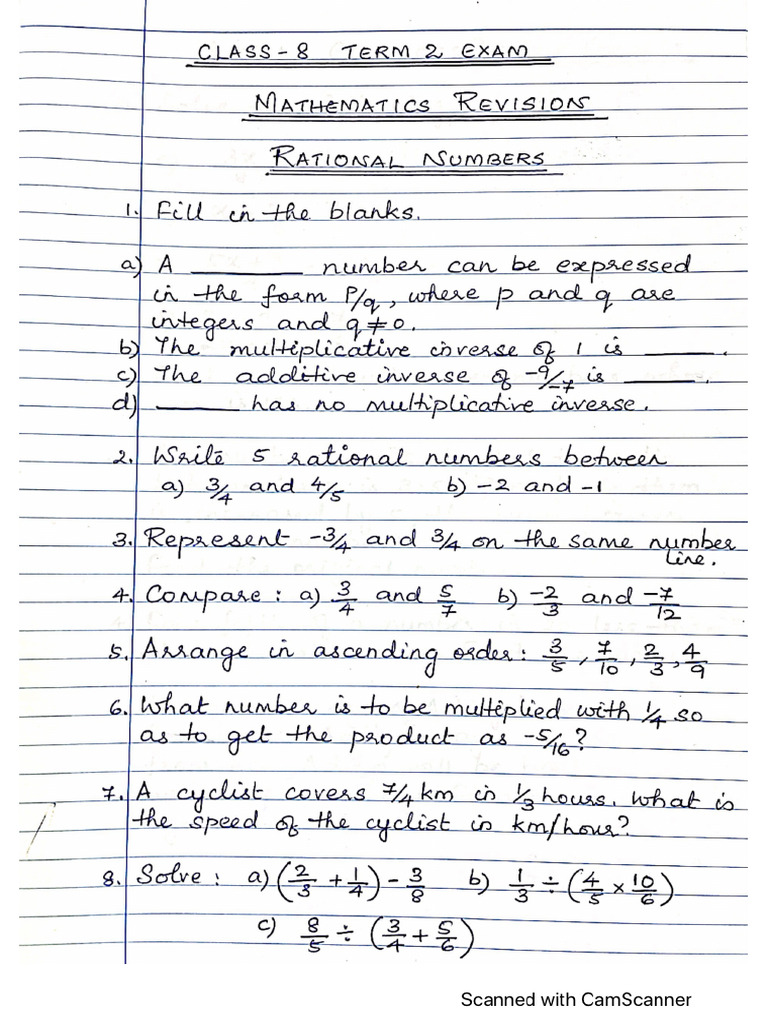 CLASS-8 TERM 2 EXAM
MATHEMATICS REVISION
RATIONAL NUMBERS
1. Fill in the blanks.
a) A ________ number can be expressed
in the form P/q, where p and q are
integers and q≠0.
b) The multiplicative inverse of 1 is ______.
c) The additive inverse of -9/-7 is ______.
d) ______ has no multiplicative inverse.
2. Write 5 rational numbers between
a) 3/4 and 4/5 b) -2 and -1
3. Represent -3/4 and 3/4 on the same number
line.
4. Compare: a) 3/4 and 5/7 b) -2/3 and -7/12
5. Arrange in ascending order: 3/5, 7/10, 2/3, 4/9
6. What number is to be multiplied with 1/4 so
as to get the product as -5/16?
7. A cyclist covers 7/4 km in 1/3 hours. What is
the speed of the cyclist in km/hour?
8. Solve: a) (2/3 + 1/4) - 3/8 b) 1/3 ÷ (4/5 × 10/6)
c) 8/5 ÷ (3/4 + 5/6)
Scanned with CamScanner